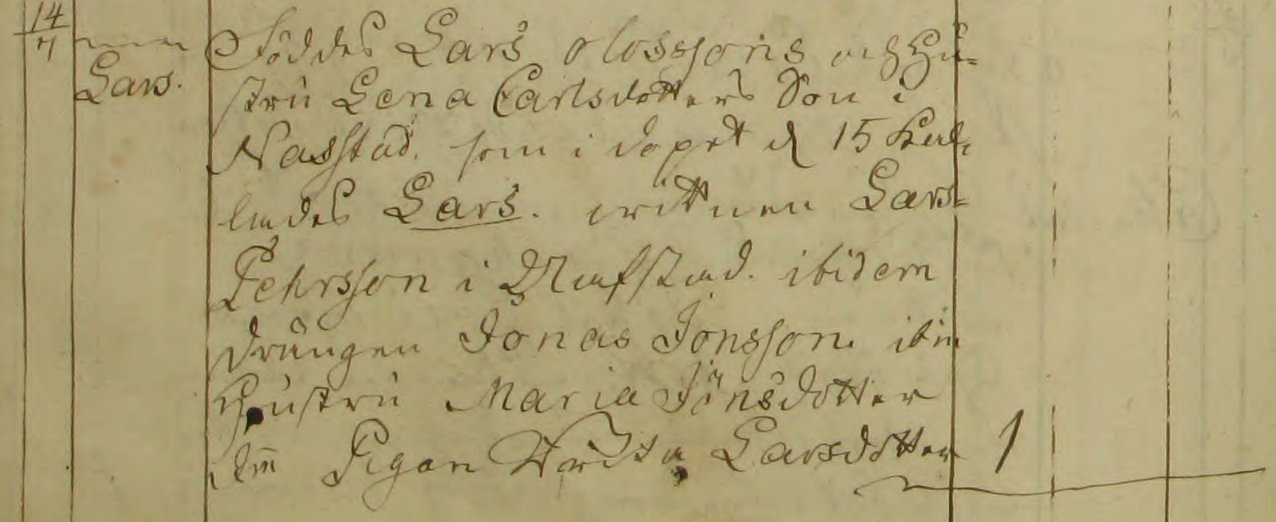 14/7
Lars.
Föddes Lars Olossons och Hu-
stru Lena Carlsdotters Son i
Nasstad. som i dopet d 15 kal-
lades Lars. wittnen Lars
Pehrsson i Nafstad. ibidem
drängen Jonas Jonsson. ibm
Hustru Maria Jönsdotter
Pigan Larsdotter 1